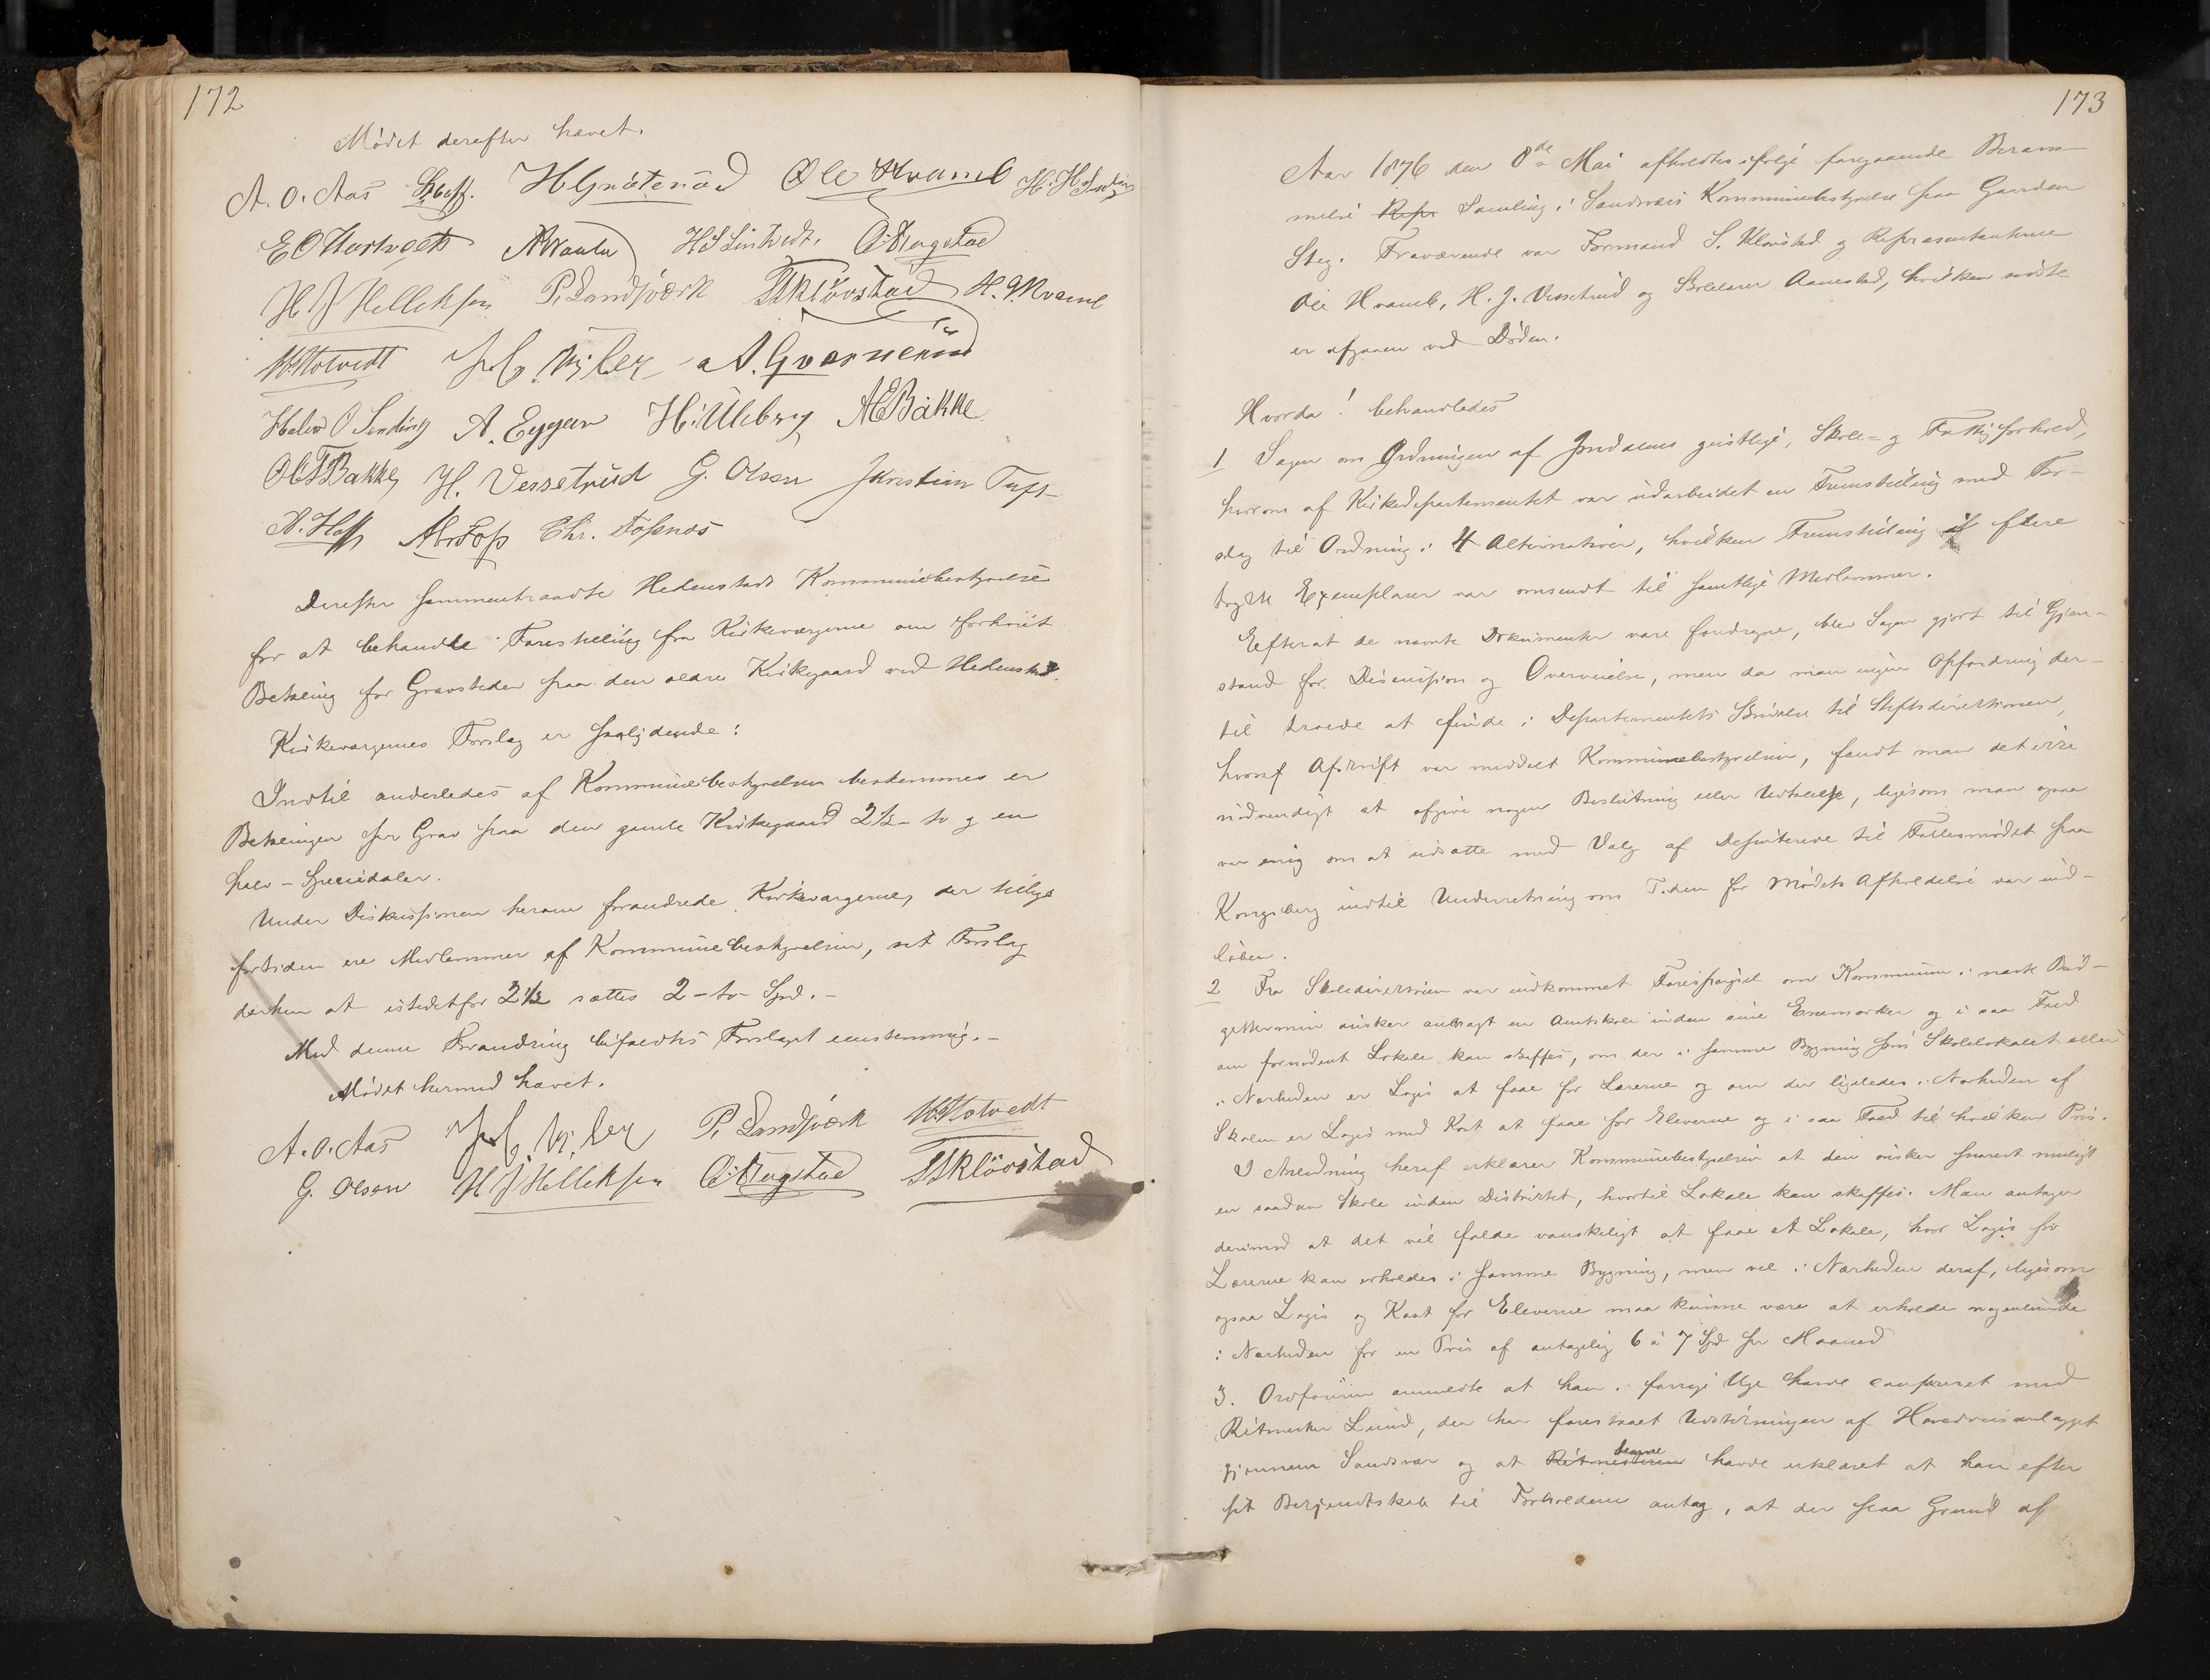 172
Mödet derefter hævet.
A. O. Aas H Gunötenöd Ole Kvamb H. H. Sending
E O H S Lintvedt. O: Haugstad
H J Helleksen P. Landsværk S S Klövstad H. G Kvamb
A. Gværneröd
Halvor O Sending A. Eggar H: Ulleberg A E Bakke
Ole T Bakke, H. Vessetrud G. Olsen Kristian Tufs
A. Hoff Foss Chr. Fossnæs
Derefter sammentraadte Hedenstads Kommunebestyrelse
for at behandle Forestilling fra Kirkeværgerne om forhöiet
Betaling for Gravsteder paa den ældre Kirkegaard ved Hedenstad.
Kirkeværgernes Forslag er saalydende:
Indtil anderledes af Kommunebestyrelsen bestemmes er
Betalingen for Grav paa den gamle Kirkegaard 2½ - to og en
halv - Speciedaler.
Under Diskussionen herom forandrede Kirkeværgerne, der tillige
fortiden ere Medlemmer af Kommunebestyrelsen, sit Forslag
derhen at istedetfor 2½ sættes 2 - to - Spd. -
Med denne Forandring bifaldtes Forslaget eenstemmig. -
Mödet hermed hævet.
A. O. Aas P. Landsværk
G. Olsen H J Helleksen O: Haugstad S S Klövstad
173
Aar 1876 den 8de Mai afholdtes ifölge foregaaende Beram-
melse Repr Samling i Sandsvers Kommunebestyrelse paa Gaarden
Steg. Fraværende var Formand S. Klovstad og Repræsentanterne
Ole Kvamb, H. J. Vessetrud og Skolelærer Aanestad, hvilken sidste
er afgaaen ved Döden.
Hvorda! behandledes
1 Sagen om Ordningen af Jondalens geistlige, Skole- og Fattigforhold,
hvorom af Kirkedepartementet var udarbeidet en Fremstilling med For-
slag til Ordning i 4 Alternativer, hvilken Fremstilling if flere
trykte Exemplarer var omsendt til samtlige Medlemmer.
Efterat de nævnte Dokumenter vare foredragne, blev Sagen gjort til Gjen-
stand for Discussion og Overveielse, men da man ingen Opfordring der-
til troede at finde i Departementets Skrivelse til Stiftsdirektionen,
hvoraf Afskrift var meddelt Kommunebestyrelsen, fandt man det ikke
nödvendigt at afgive nogen Beslutning eller Udtalelse, ligesom man ogsaa
var enig om at udsætte med Valg af Deputerede til Fællesmödet paa
Kongsberg indtil Underretning om Tiden for Mödets Afholdelse var ind-
löben.
2 Fra Skoledirektionen var indkommet Forespörgsel om Kommunen i næste Bud-
gettermin önsker anbragt en Amtskole inden sine Enemærker og i saa Fald
om fornödent Lokale kan skaffes, om der i samme Bygning som Skolelokalet eller
i Nærheden er Logis at faae for Lærerne og om der ligeledes i Nærheden af
Skolen er Logis med Kost at faae for Eleverne og i saa Fald til hvilken Pris.
I Anledning heraf erklærer Kommunebestyrelsen at den önsker snarest muligt
en saadan Skole inden Distriktet, hvortil Lokale kan skaffes. Man antager
derimod at det vil falde vanskeligt at faae et Lokale, hvor Logis for
Lærerne kan erholdes i samme Bygning, men vel i Nærheden deraf, ligesom
ogsaa Logis og Kost for Eleverne maa kunne være at erholde nogenlunde
i Nærheden for en Pris af antagelig 6 à 7 Spd per Maaned
3. Ordföreren anmeldte at han i forrige Uge havde confereret med
Ritmester Lund, der har forestaaet Udstikningen af Hovedveisanlægget
gjennem Sandsvær og at Ritmesteren denne havde erklæret at han efter
sit Bekjendtskab til Forholdene antog, at der paa Grund af